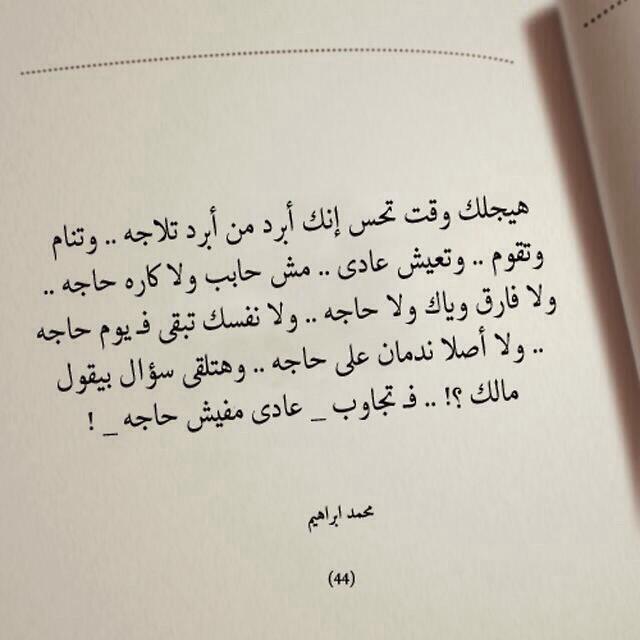 هيجلك وقت تحس إنك أبرد من أبرد تلاجه .. وتنام
وتقوم .. وتعيش عادى .. مش حابب ولا كاره حاجه ..
ولا فارق وياك ولا حاجه .. ولا نفسك تبقى فـ يوم حاجه
.. ولا أصلا ندمان على حاجه .. وهتلقى سؤال بيقول
مالك ؟! .. فـ تجاوب _ عادى مفيش حاجه _ !
محمد ابراهيم
(44)